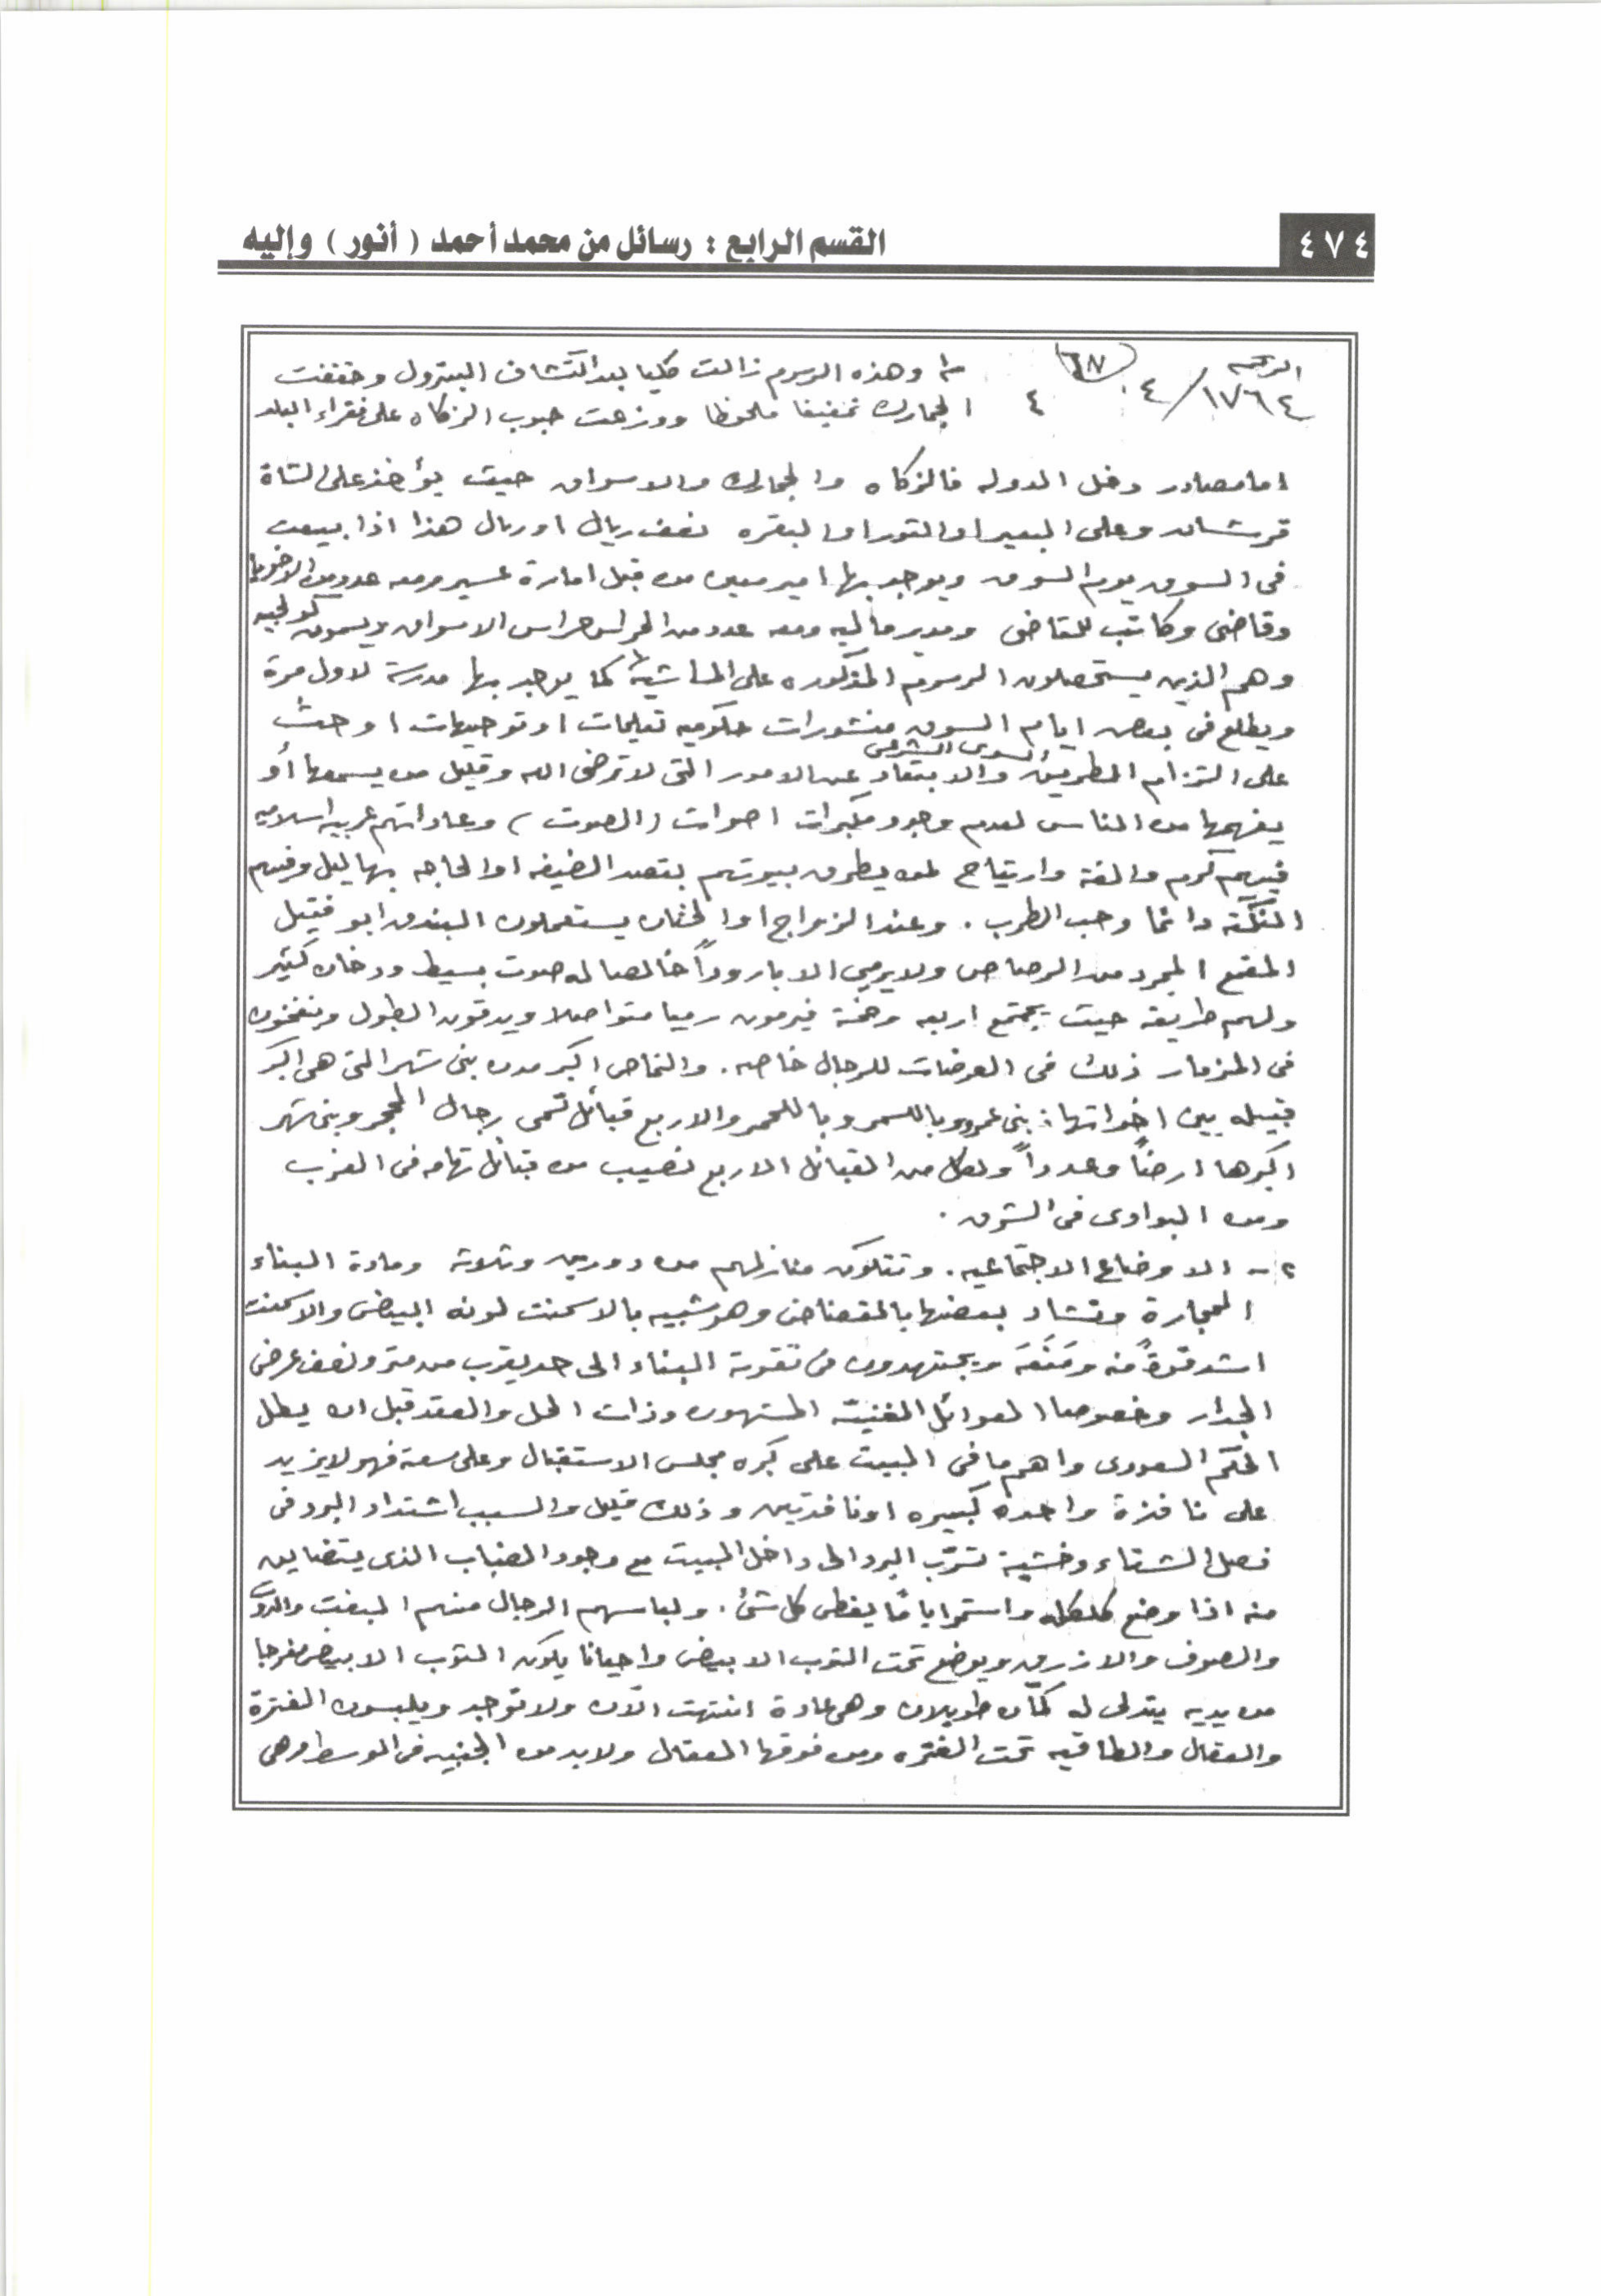 ٤٧٤
القسم الرابع : رسائل من محمد أحمد ( أنور ) وإليه
الرقم ٦٧
١٧٦٤ / ٤٠ ٤
وهذه الرسوم زالت كليا بعد اكتشاف البترول وخففت
الجمارك تخفيفا ملحوظا ووزعت حبوب الزكاه على فقراء البلد
اما مصادر دخل الدوله فالزكاه والجمارك والاسواق حيث يؤخذ على الشاة
قرشان وعلى البعير او الثور او البقره نصف ريال او ريال هذا اذا بيعت
فى السوق يوم السوق ويوجد بها امير معين من قبل امارة عسير ومعه عدد من الاخويا
وقاضى وكاتب للقاضى ومدير ماليه ومعه عدد من الحراس حراس الاسواق ويسمون كولجيه
وهم الذين يستحصلون الرسوم المذكوره على الماشيه كما يوجد بها مدرسة لاول مرة
ويطلع فى بعض ايام السوق منشورات حكوميه تعليمات او توجيهات او حث
على التزام الطريق السوى الشرعى والابتعاد عن الامور التى لا ترضى الله وقليل من يسمعها أو
يفهمها من الناس لعدم وجود مكبرات اصوات (الصوت) وعاداتهم عربيه اسلاميه
فيهم كرم والفة وارتياح لمن يطرق بيوتهم بقصد الضيفه او الحاجه بها ليل وفيهم
النكتة دائما وحب الطرب . وعند الزواج او الختان يستعملون البندق ابو فتيل
المقمع المجرد من الرصاص ولا يرمى الا باروداً خالصا له صوت بسيط ودخان كثير
ولهم طريقه حيث يجتمع اربعه وخمسة فيرمون رميا متواصلا ويدقون الطبول وينفخون
فى المزمار ذلك فى العرضات للرجال خاصه . والنماص اكبر مدن بنى شهر التى هى اكبر
قبيله بين اخواتها : بنى عمرو وباللسمر وباللحمر والاربع قبائل تسمى رجال الحجر وبنى شهر
اكبرها ارضاً وعدداً ولكل من القبائل الاربع نصيب من قبائل تهامه فى الغرب
ومن البوادى فى الشرق .
٢ - الاوضاع الاجتماعيه . وتتكون منازلهم من دورين وثلاثة ومادة البناء
الحجارة وتشاد بعضها بالقضاض وهو شبيه بالاسمنت لونه البيض والاسمنت
اشد قوةً منه ومَنَعَه ويجتهدون فى تقوية البناء الى حد يقرب من متر ونصف عرض
الجدار وخصوصا العوائل الغنيه المشهوره وذات الحل والعقد قبل ان يطل
الحكم السعودى واهم ما فى البيت على كبره مجلس الاستقبال وعلى سعته فهو لا يزيد
على نافذة واحده كبيره او نافذتين وذلك قليل والسبب اشتداد البرد فى
فصل الشتاء وخشية تسرّب البرد الى داخل البيت مع وجود الضباب الذى يتضايق
منه اذا وضع كلكله واستمر اياما يغطى كل شئ . ولباسهم الرجال منهم البفت والدوت
والصوف والازرق ويوضع تحت الثوب الابيض واحيانا يكون الثوب الابيض مفرجا
من يديه يتدلى له كمّان طويلان وهى عادة انتهت الآن ولا توجد ويلبسون الغترة
والعقال والطاقيه تحت الغتره ومن فوقها العقال ولابد من الجنبيه فى الوسط وهى